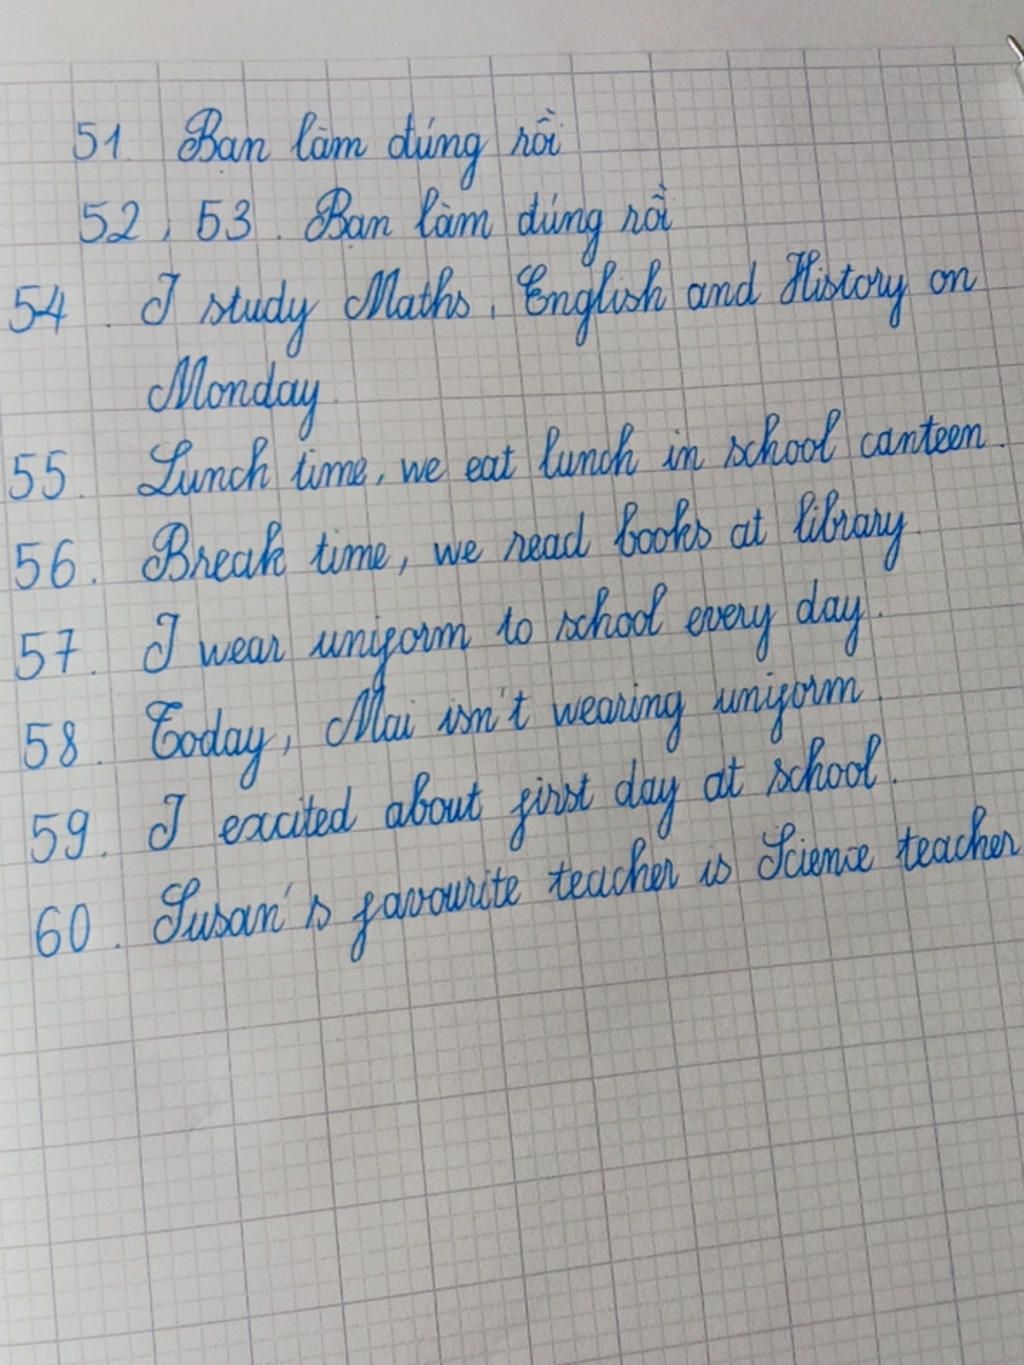 51. Bạn làm đúng rồi
52, 53. Bạn làm đúng rồi
54. I study Maths, English and History on
Monday.
55. Lunch time, we eat lunch in school canteen.
56. Break time, we read books at library.
57. I wear uniform to school every day.
58. Today, Mai isn't wearing uniform.
59. I excited about first day at school.
60. Susan's favourite teacher is Science teacher